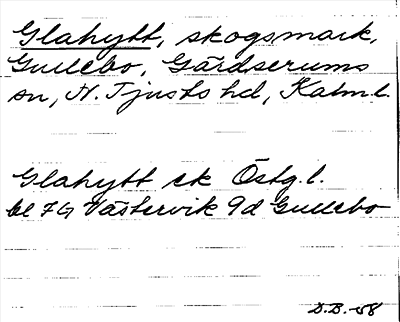 Glahytt, skogsmark,
Gullebo, Gärdserums
sn, N. Tjusts hd, Kalm.l.
Glahytt ek Östg.l.
bl 7G Västervik 9d Gullebo
D.B. -58